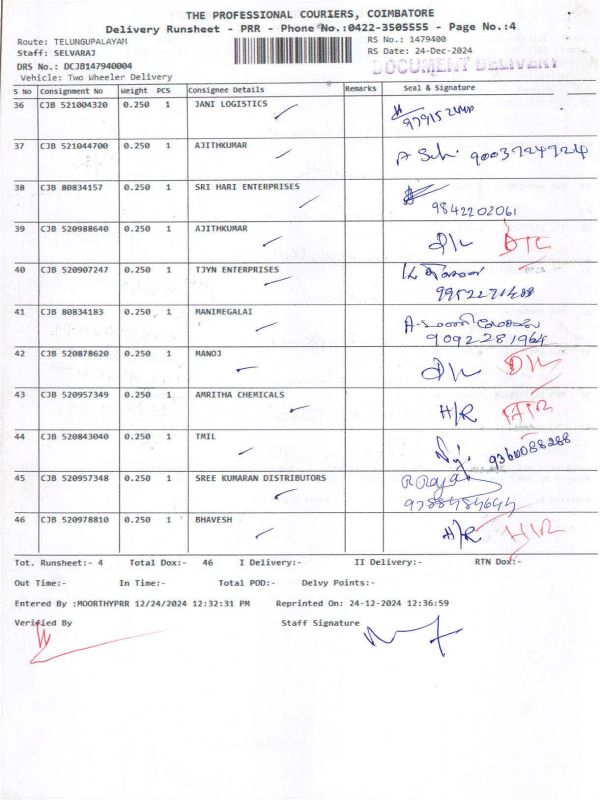 THE PROFESSIONAL COURIERS, COIMBATORE
Delivery Runsheet - PRR - Phone No.:0422-3505555 - Page No.:4
Route: TELUNGUPALAYAM
RS No.: 1479400
Staff: SELVARAJ
RS Date: 24-Dec-2024
DOCUMENT DELIVERY
DRS No.: DCJB147940004
Vehicle: Two Wheeler Delivery
S No Consignment No Weight PCS Consignee Details Remarks Seal & Signature
36 CJB 521004320 0.250 1 JANI LOGISTICS
37 CJB 521044700 0.250 1 AJITHKUMAR 9003724724
38 CJB 80834157 0.250 1 SRI HARI ENTERPRISES
9842202061
39 CJB 520988640 0.250 1 AJITHKUMAR D/L
40 CJB 520907247 0.250 1 TJYN ENTERPRISES
41 CJB 80834183 0.250 1 MANIMEGALAI
9092281964
42 CJB 520878620 0.250 1 MANOJ D/L D/L
43 CJB 520957349 0.250 1 AMRITHA CHEMICALS H/R
44 CJB 520843040 0.250 1 TMIL 9360088288
45 CJB 520957348 0.250 1 SREE KUMARAN DISTRIBUTORS
46 CJB 520978810 0.250 1 BHAVESH H/R H/R
Tot. Runsheet:- 4 Total Dox:- 46 I Delivery:- II Delivery:- RTN Dox:-
Out Time:- In Time:- Total POD:- Delvy Points:-
Entered By :MOORTHYPRR 12/24/2024 12:32:31 PM Reprinted On: 24-12-2024 12:36:59
Verified By Staff Signature